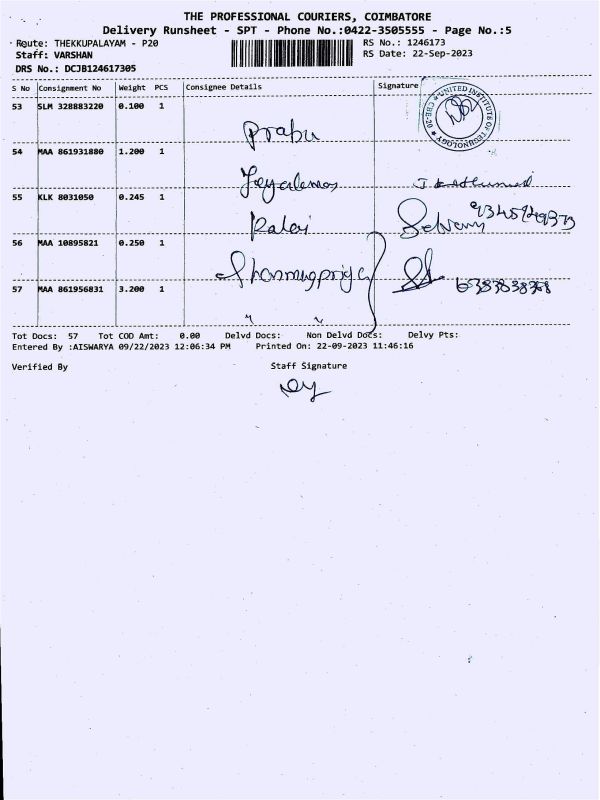 THE PROFESSIONAL COURIERS, COIMBATORE
Delivery Runsheet - SPT - Phone No.:0422-3505555 - Page No.:5
Route: THEKKUPALAYAM - P20
RS No.: 1246173
Staff: VARSHAN
RS Date: 22-Sep-2023
DRS No.: DCJB124617305
S No Consignment No Weight PCS Consignee Details Signature
53 SLM 328883220 0.100 1
UNITED INSTITUTE OF TECHNOLOGY
Prabu
54 MAA 861931880 1.200 1
55 KLK 8031050 0.245 1
Kalai Selvam
56 MAA 10895821 0.250 1
Shanmugpriya
57 MAA 861956831 3.200 1
Tot Docs: 57 Tot COD Amt: 0.00 Delvd Docs: Non Delvd Docs: Delvy Pts:
Entered By :AISWARYA 09/22/2023 12:06:34 PM Printed On: 22-09-2023 11:46:16
Verified By Staff Signature